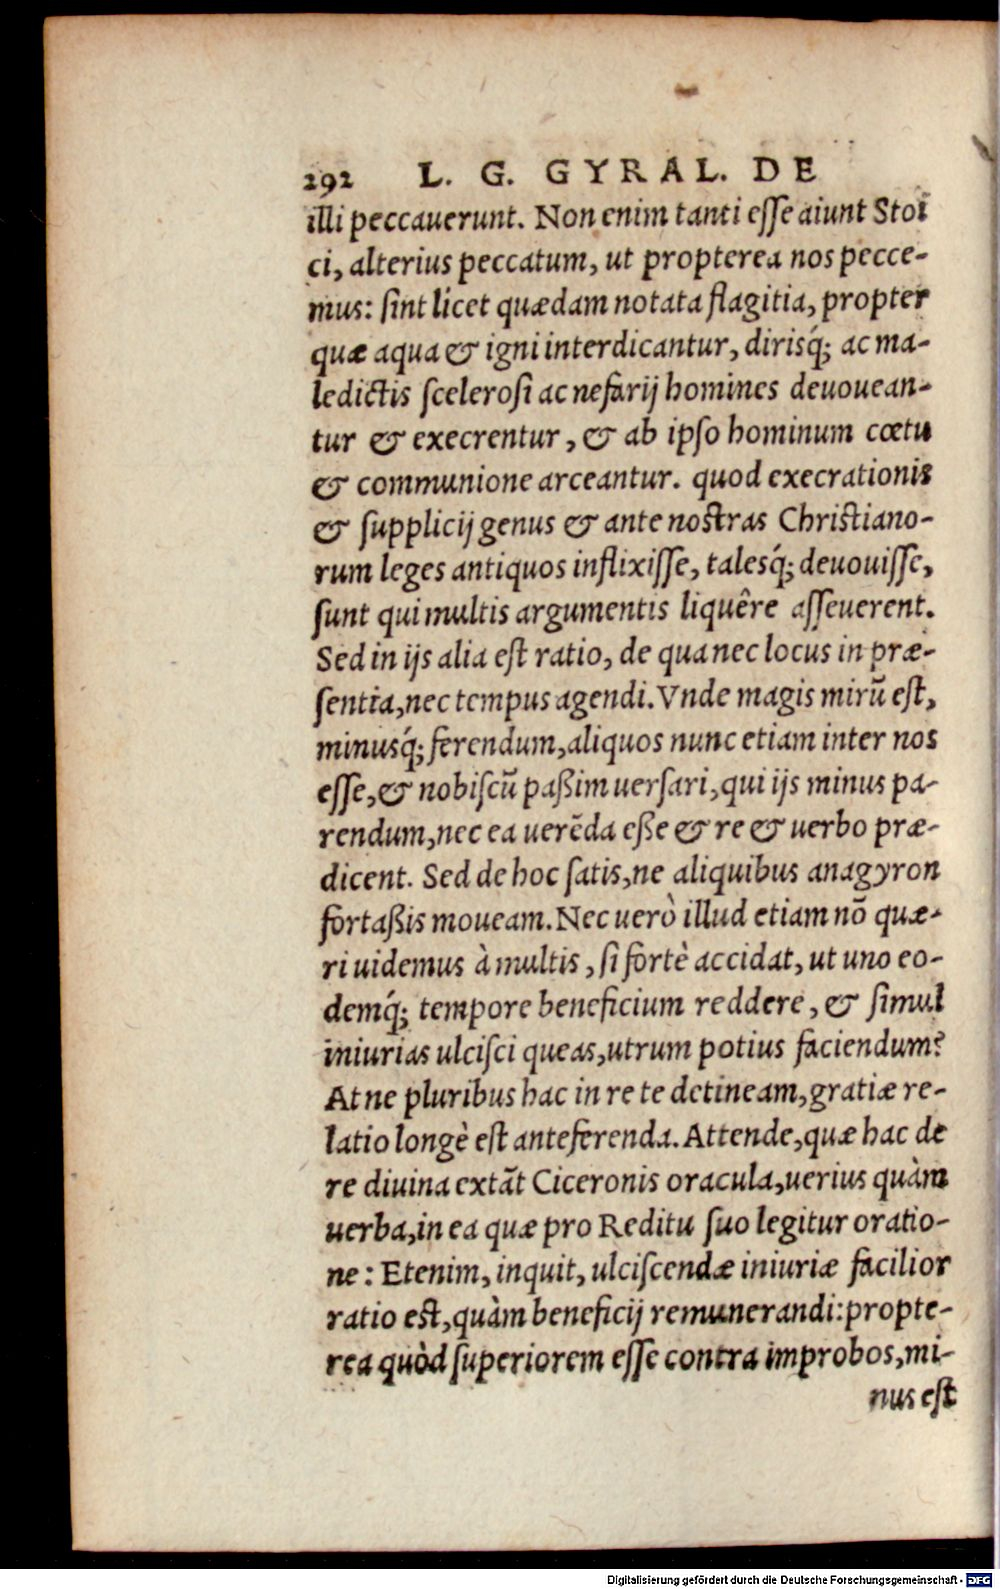 292 L. G. GYRAL. DE
illi peccauerunt. Non enim tanti esse aiunt Stoi
ci, alterius peccatum, ut propterea nos pecce-
mus: sint licet quædam notata flagitia, propter
quæ aqua & igni interdicantur, dirisq́; ac ma-
ledictis scelerosi ac nefarij homines deuouean-
tur & execrentur, & ab ipso hominum cœtu
& communione arceantur. quod execrationis
& supplicij genus & ante nostras Christiano-
rum leges antiquos inflixisse, talesq́; deuouisse,
sunt qui multis argumentis liquêre asseuerent.
Sed in ijs alia est ratio, de qua nec locus in præ-
sentia, nec tempus agendi. Vnde magis mirũ est,
minusq́; ferendum, aliquos nunc etiam inter nos
esse, & nobiscũ paßim uersari, qui ijs minus pa-
rendum, nec ea uerẽda eße & re & uerbo præ-
dicent. Sed de hoc satis, ne aliquibus anagyron
fortaßis moueam. Nec uerò illud etiam nõ quæ-
ri uidemus à multis, si fortè accidat, ut uno eo-
demq́; tempore beneficium reddere, & simul
iniurias ulcisci queas, utrum potius faciendum?
At ne pluribus hac in re te detineam, gratiæ re-
latio longè est anteferenda. Attende, quæ hac de
re diuina extãt Ciceronis oracula, uerius quàm
uerba, in ea quæ pro Reditu suo legitur oratio-
ne: Etenim, inquit, ulciscendæ iniuriæ facilior
ratio est, quàm beneficij remunerandi: propte-
rea quòd superiorem esse contra improbos, mi-
nus est
Digitalisierung gefördert durch die Deutsche Forschungsgemeinschaft - DFG